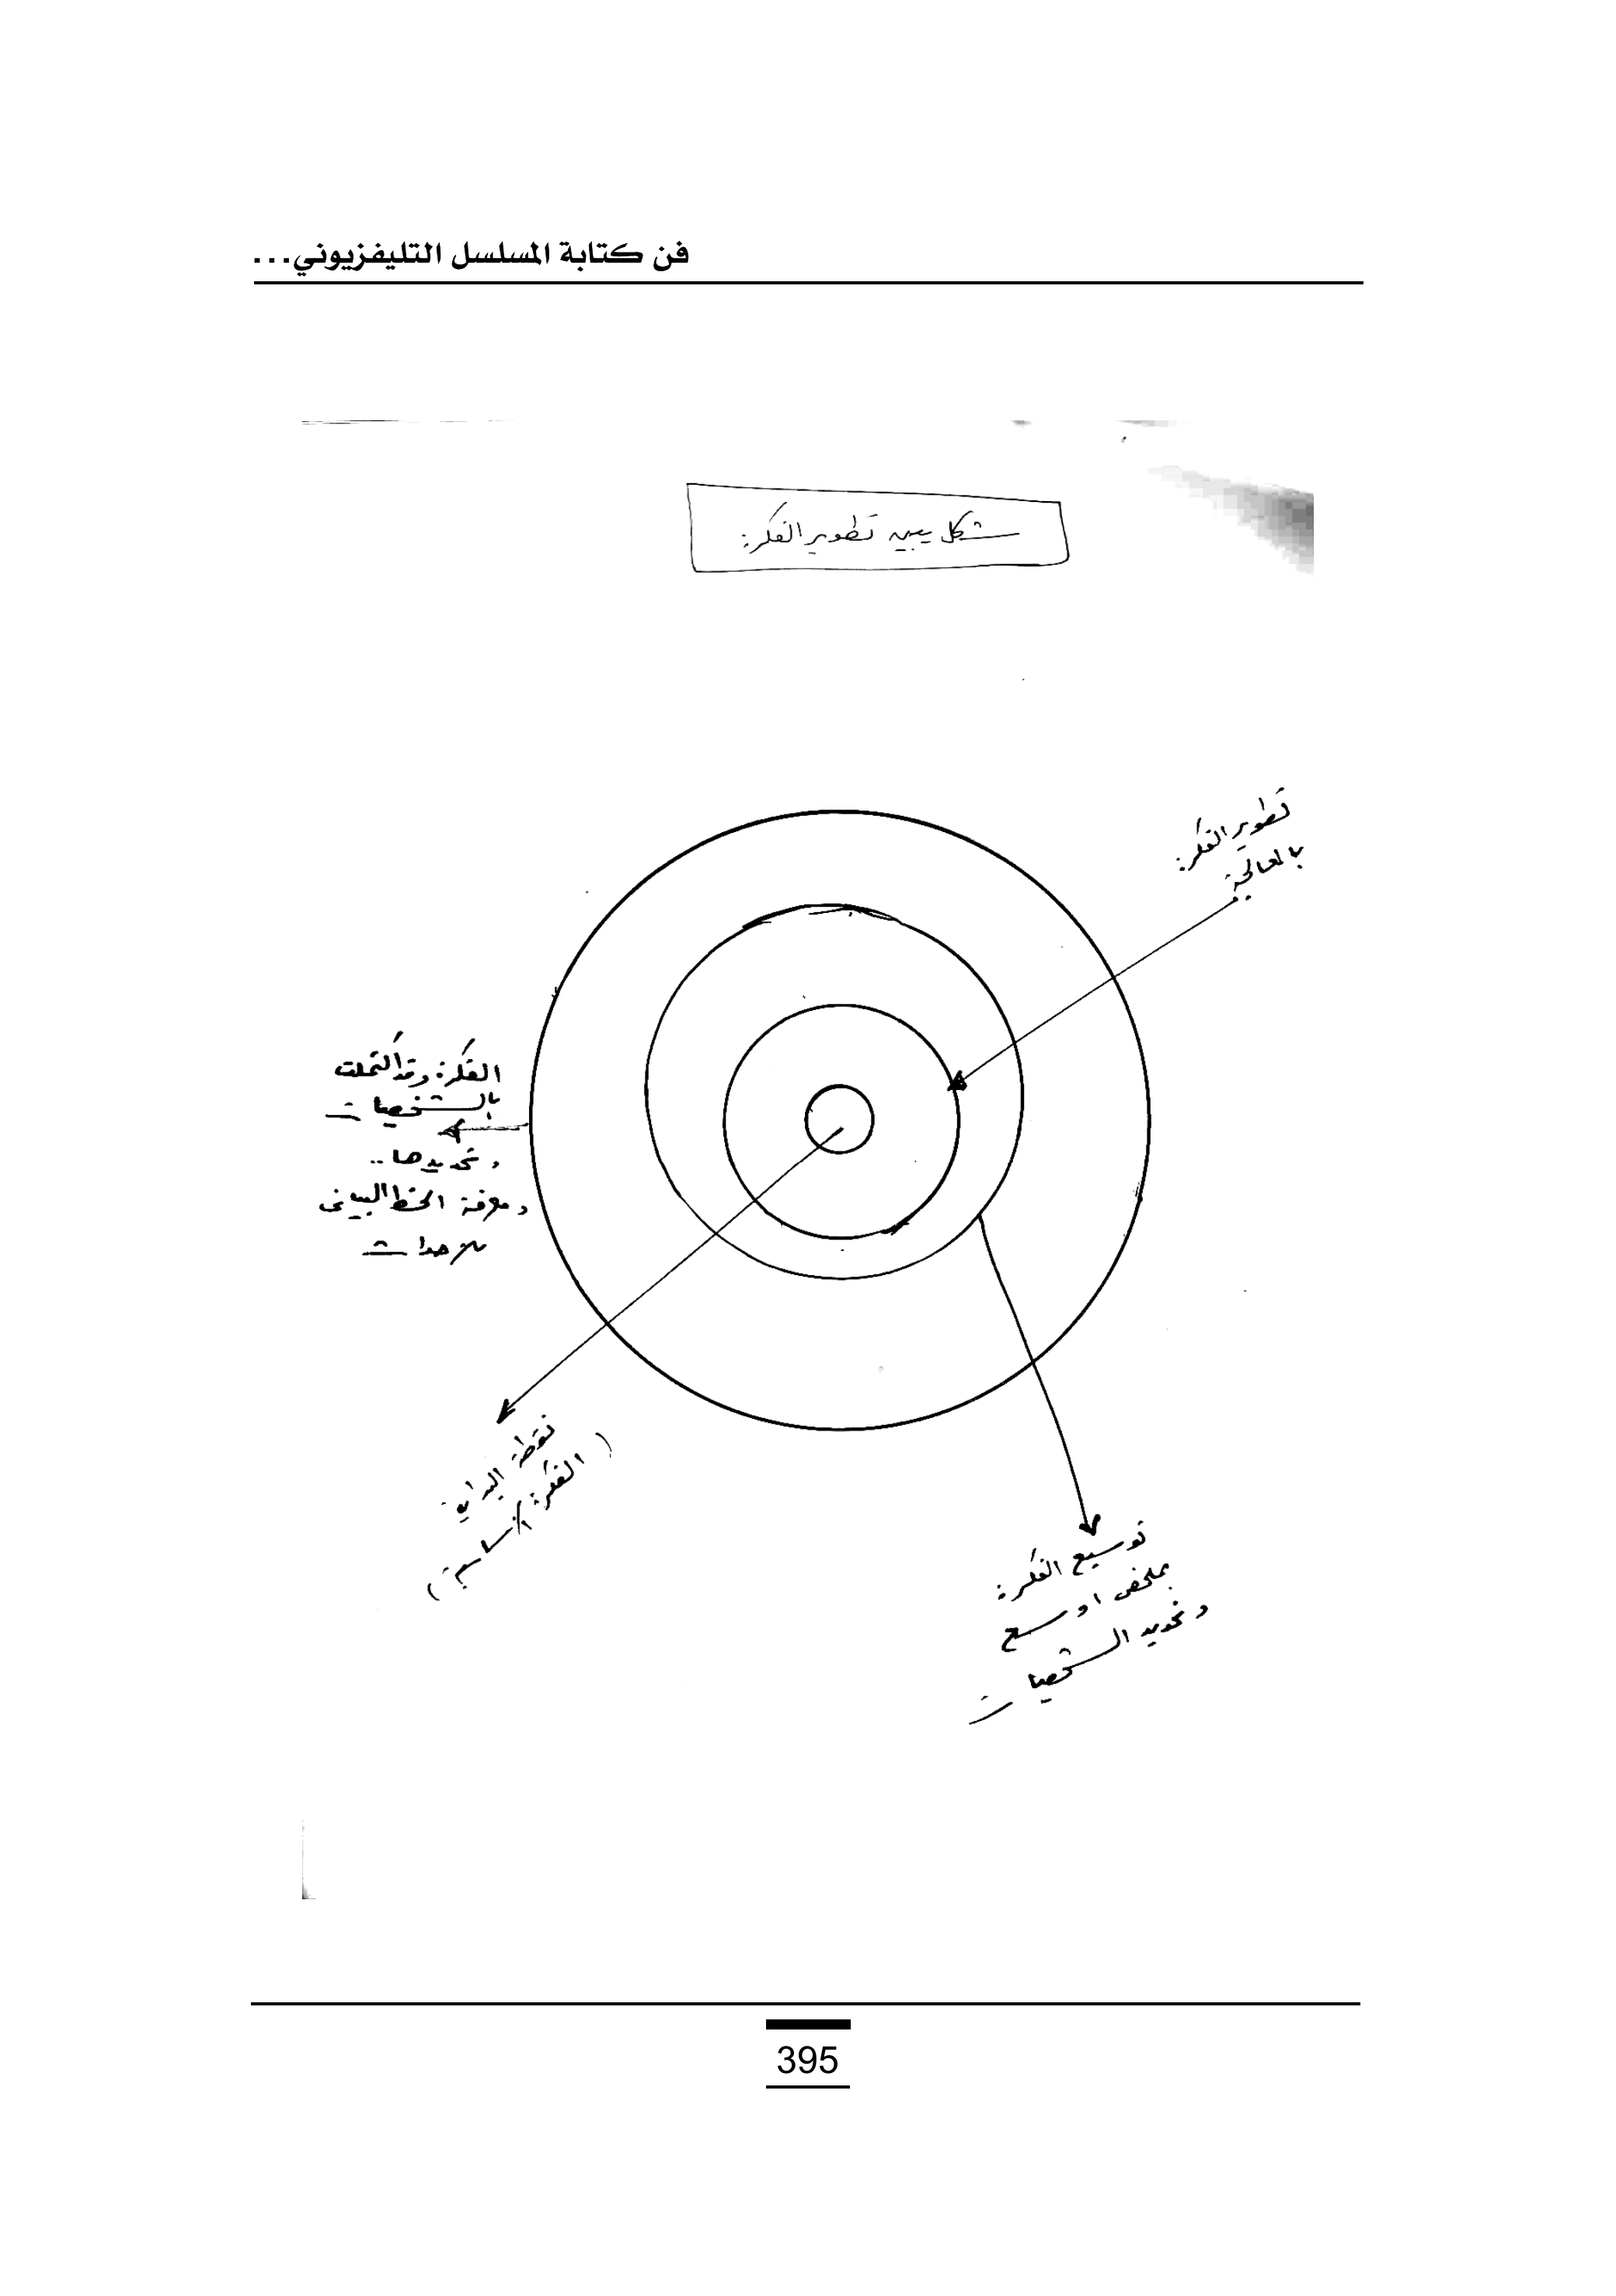 فن كتابة المسلسل التليفزيوني...
شكل يبين تطوير الفكرة
تطوير الفكرة
بالمعالجة
الفكرة وقد اكتملت
بالشخصيات
وتحديدها..
ومعرفة الخط البياني
للأحداث
نقطة البداية
(الفكرة الأساسية)
توسيع الفكرة
بملخص أوسع
وتحديد الشخصيات
395